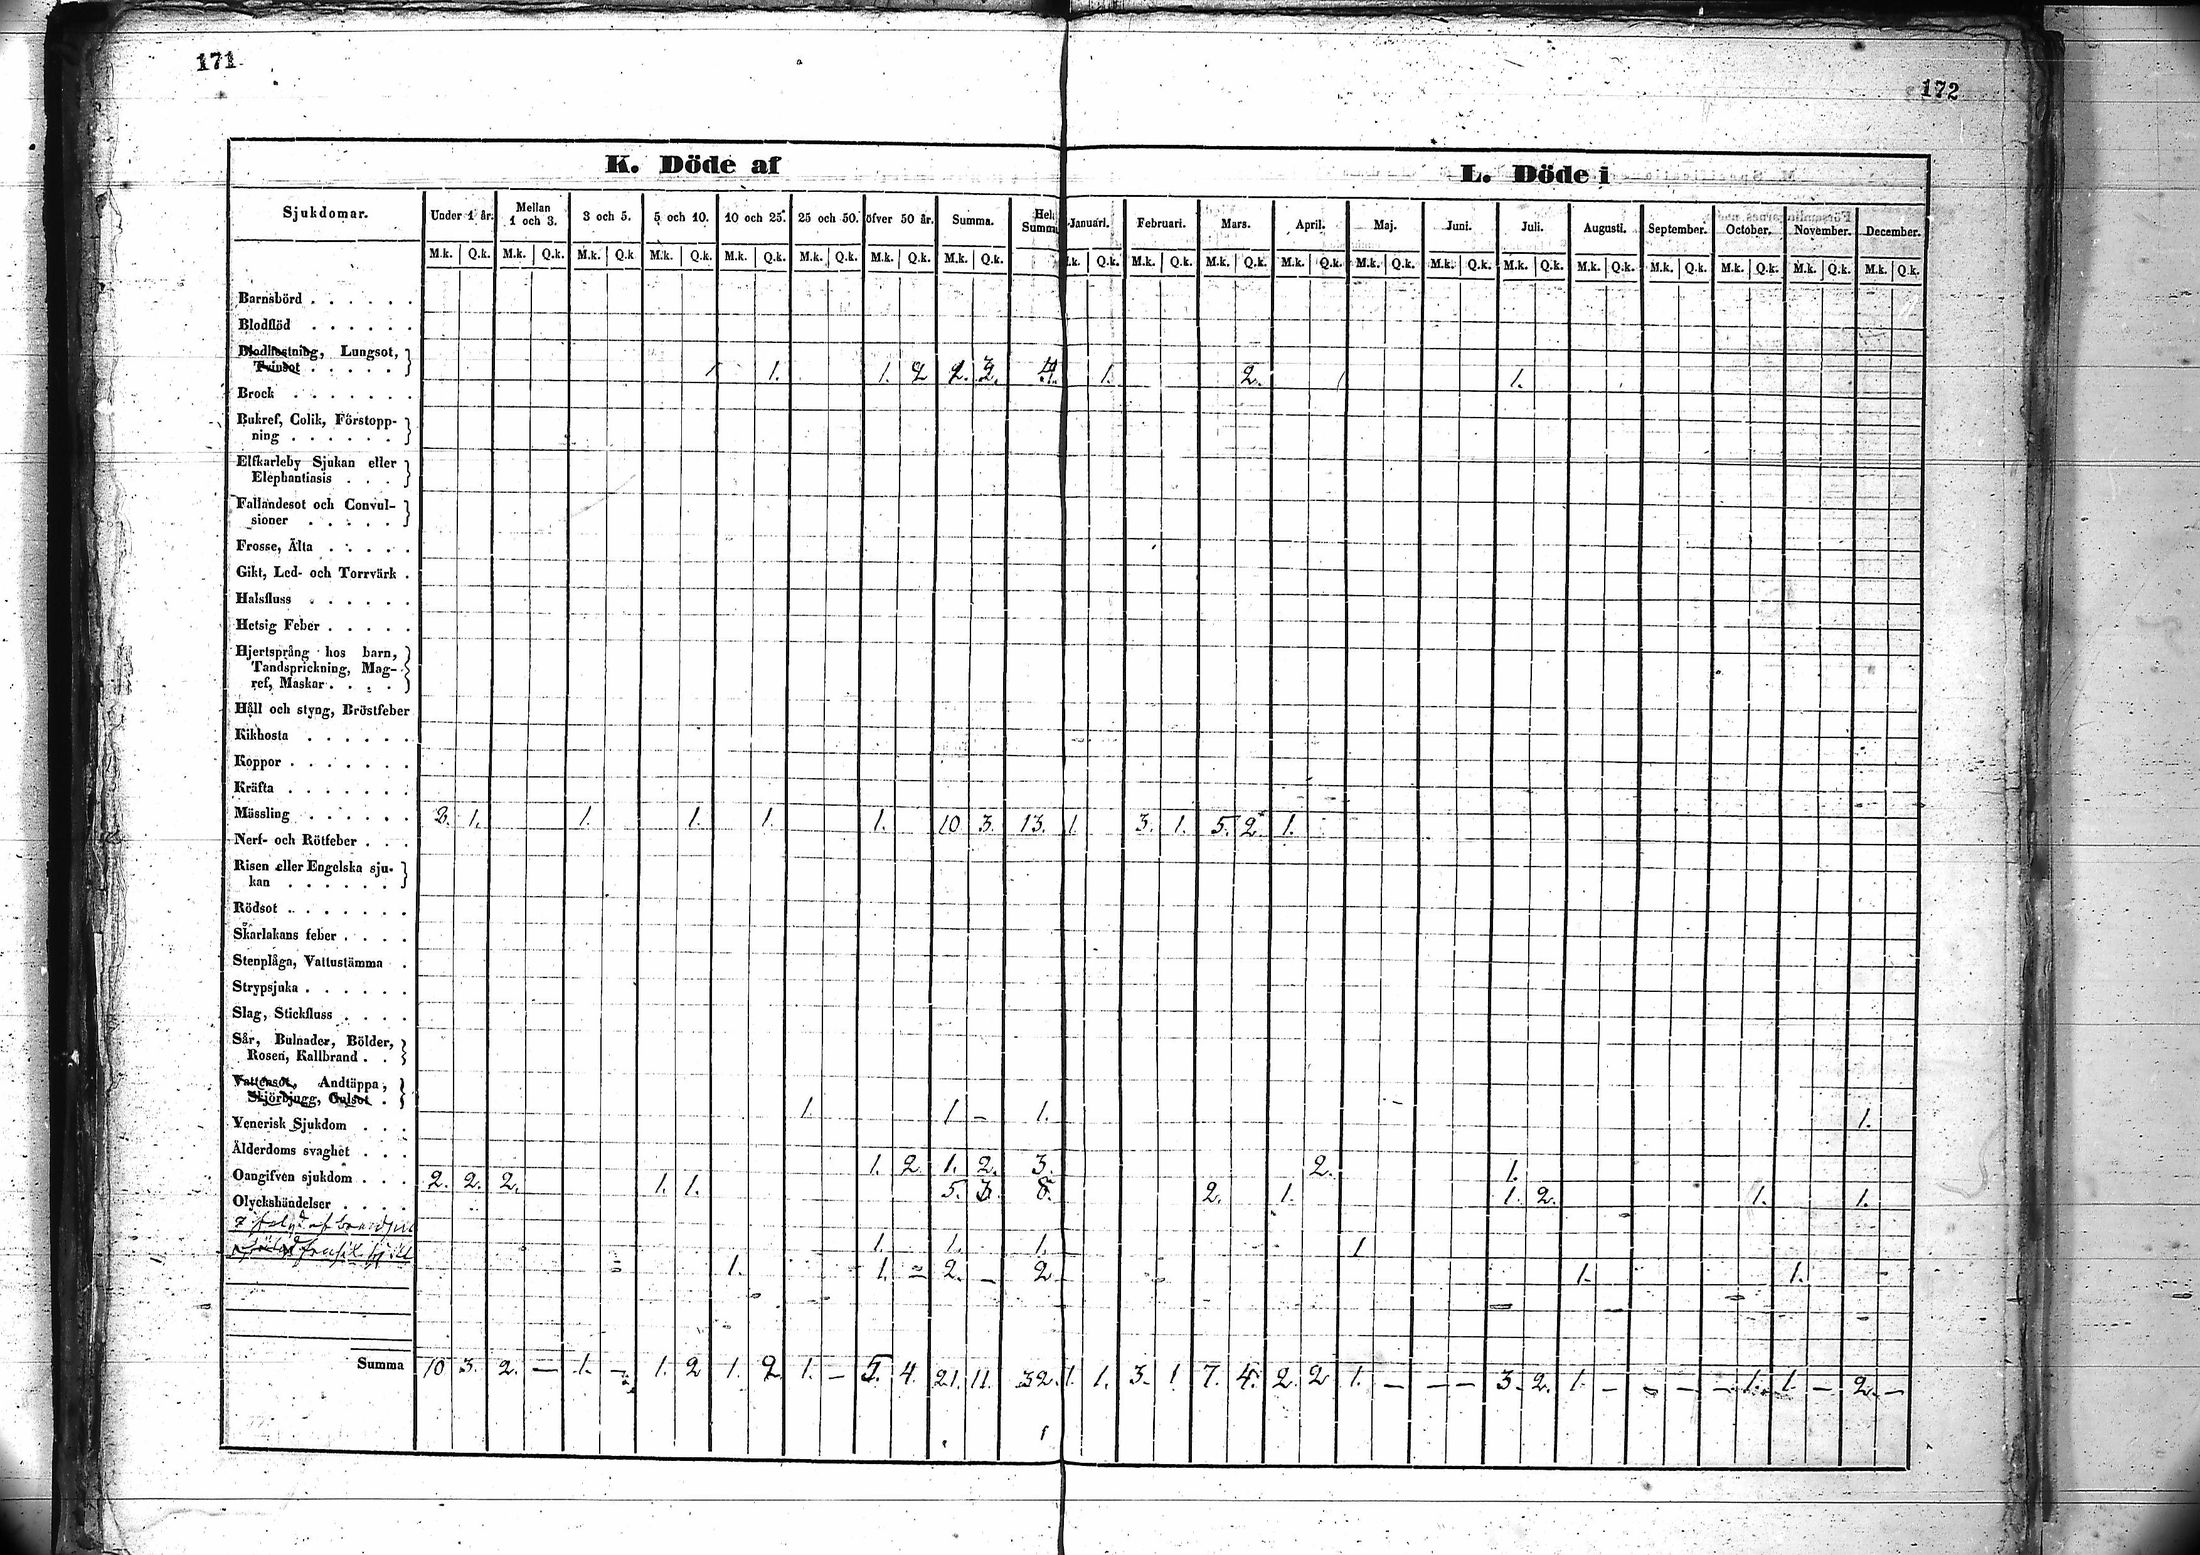 171
172
K. Döde af
L. Döde i
Sjukdomar. Under 1 år. Mellan 1 och 3. 3 och 5. 5 och 10. 10 och 25. 25 och 50. öfver 50 år. Summa. Hel Summa Januari. Februari. Mars. April. Maj. Juni. Juli. Augusti. September. October. November. December.
M.k. Q.k. M.k. Q.k. M.k. Q.k. M.k. Q.k. M.k. Q.k. M.k. Q.k. M.k. Q.k. M.k. Q.k. M.k. Q.k. M.k. Q.k. M.k. Q.k. M.k. Q.k. M.k. Q.k. M.k. Q.k. M.k. Q.k. M.k. Q.k. M.k. Q.k. M.k. Q.k. M.k. Q.k. M.k. Q.k.
Barnsbörd
Blodflöd
Blodhostning, Lungsot,
Tvinsot 1. 1. 2 3. 4. 1. 2. 1.
Brock
Bukref, Colik, Förstopp-
ning
Elfkarleby Sjukan eller
Elephantiasis
Fallandesot och Convul-
sioner
Frosse, Älta
Gikt, Led- och Torrvärk
Halsfluss
Hetsig Feber
Hjertsprång hos barn,
Tandsprickning, Mag-
ref, Maskar
Håll och styng, Bröstfeber
Kikhosta
Koppor
Kräfta
Mässling 1. 1. 1. 1. 1. 10 3. 13. 1. 3. 1. 5. 2. 1.
Nerf- och Rötfeber
Risen eller Engelska sju-
kan
Rödsot
Skarlakans feber
Stenplåga, Vattustämma
Strypsjuka
Slag, Stickfluss
Sår, Bulnader, Bölder,
Rosen, Kallbrand
Vattensot, Andtäppa,
Skjörbjugg, Gulsot 1. 1 – 1. 1.
Venerisk Sjukdom
Ålderdoms svaghet 1. 2. 1. 2. 3. 2. 1.
Oangifven sjukdom 2. 2. 2. 1. 1. 5. 3. 8. 2. 1. 1. 2. 1. 1.
Olyckshändelser
1. 1. 1. 1
1. 1. – 2. – 2 1. 1.
Summa 10 3. 2. – 1. – 1. 2 1. 2 1. – 5. 4. 21. 11. 32. 1. 1. 3. 1. 7. 4. 2. 2 1. – – – 3. 2. 1. – – – – 1. 1. – 2. –